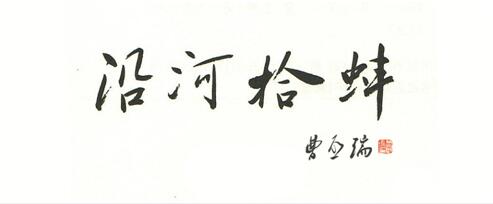 沿河拾蚌
曹亚瑞